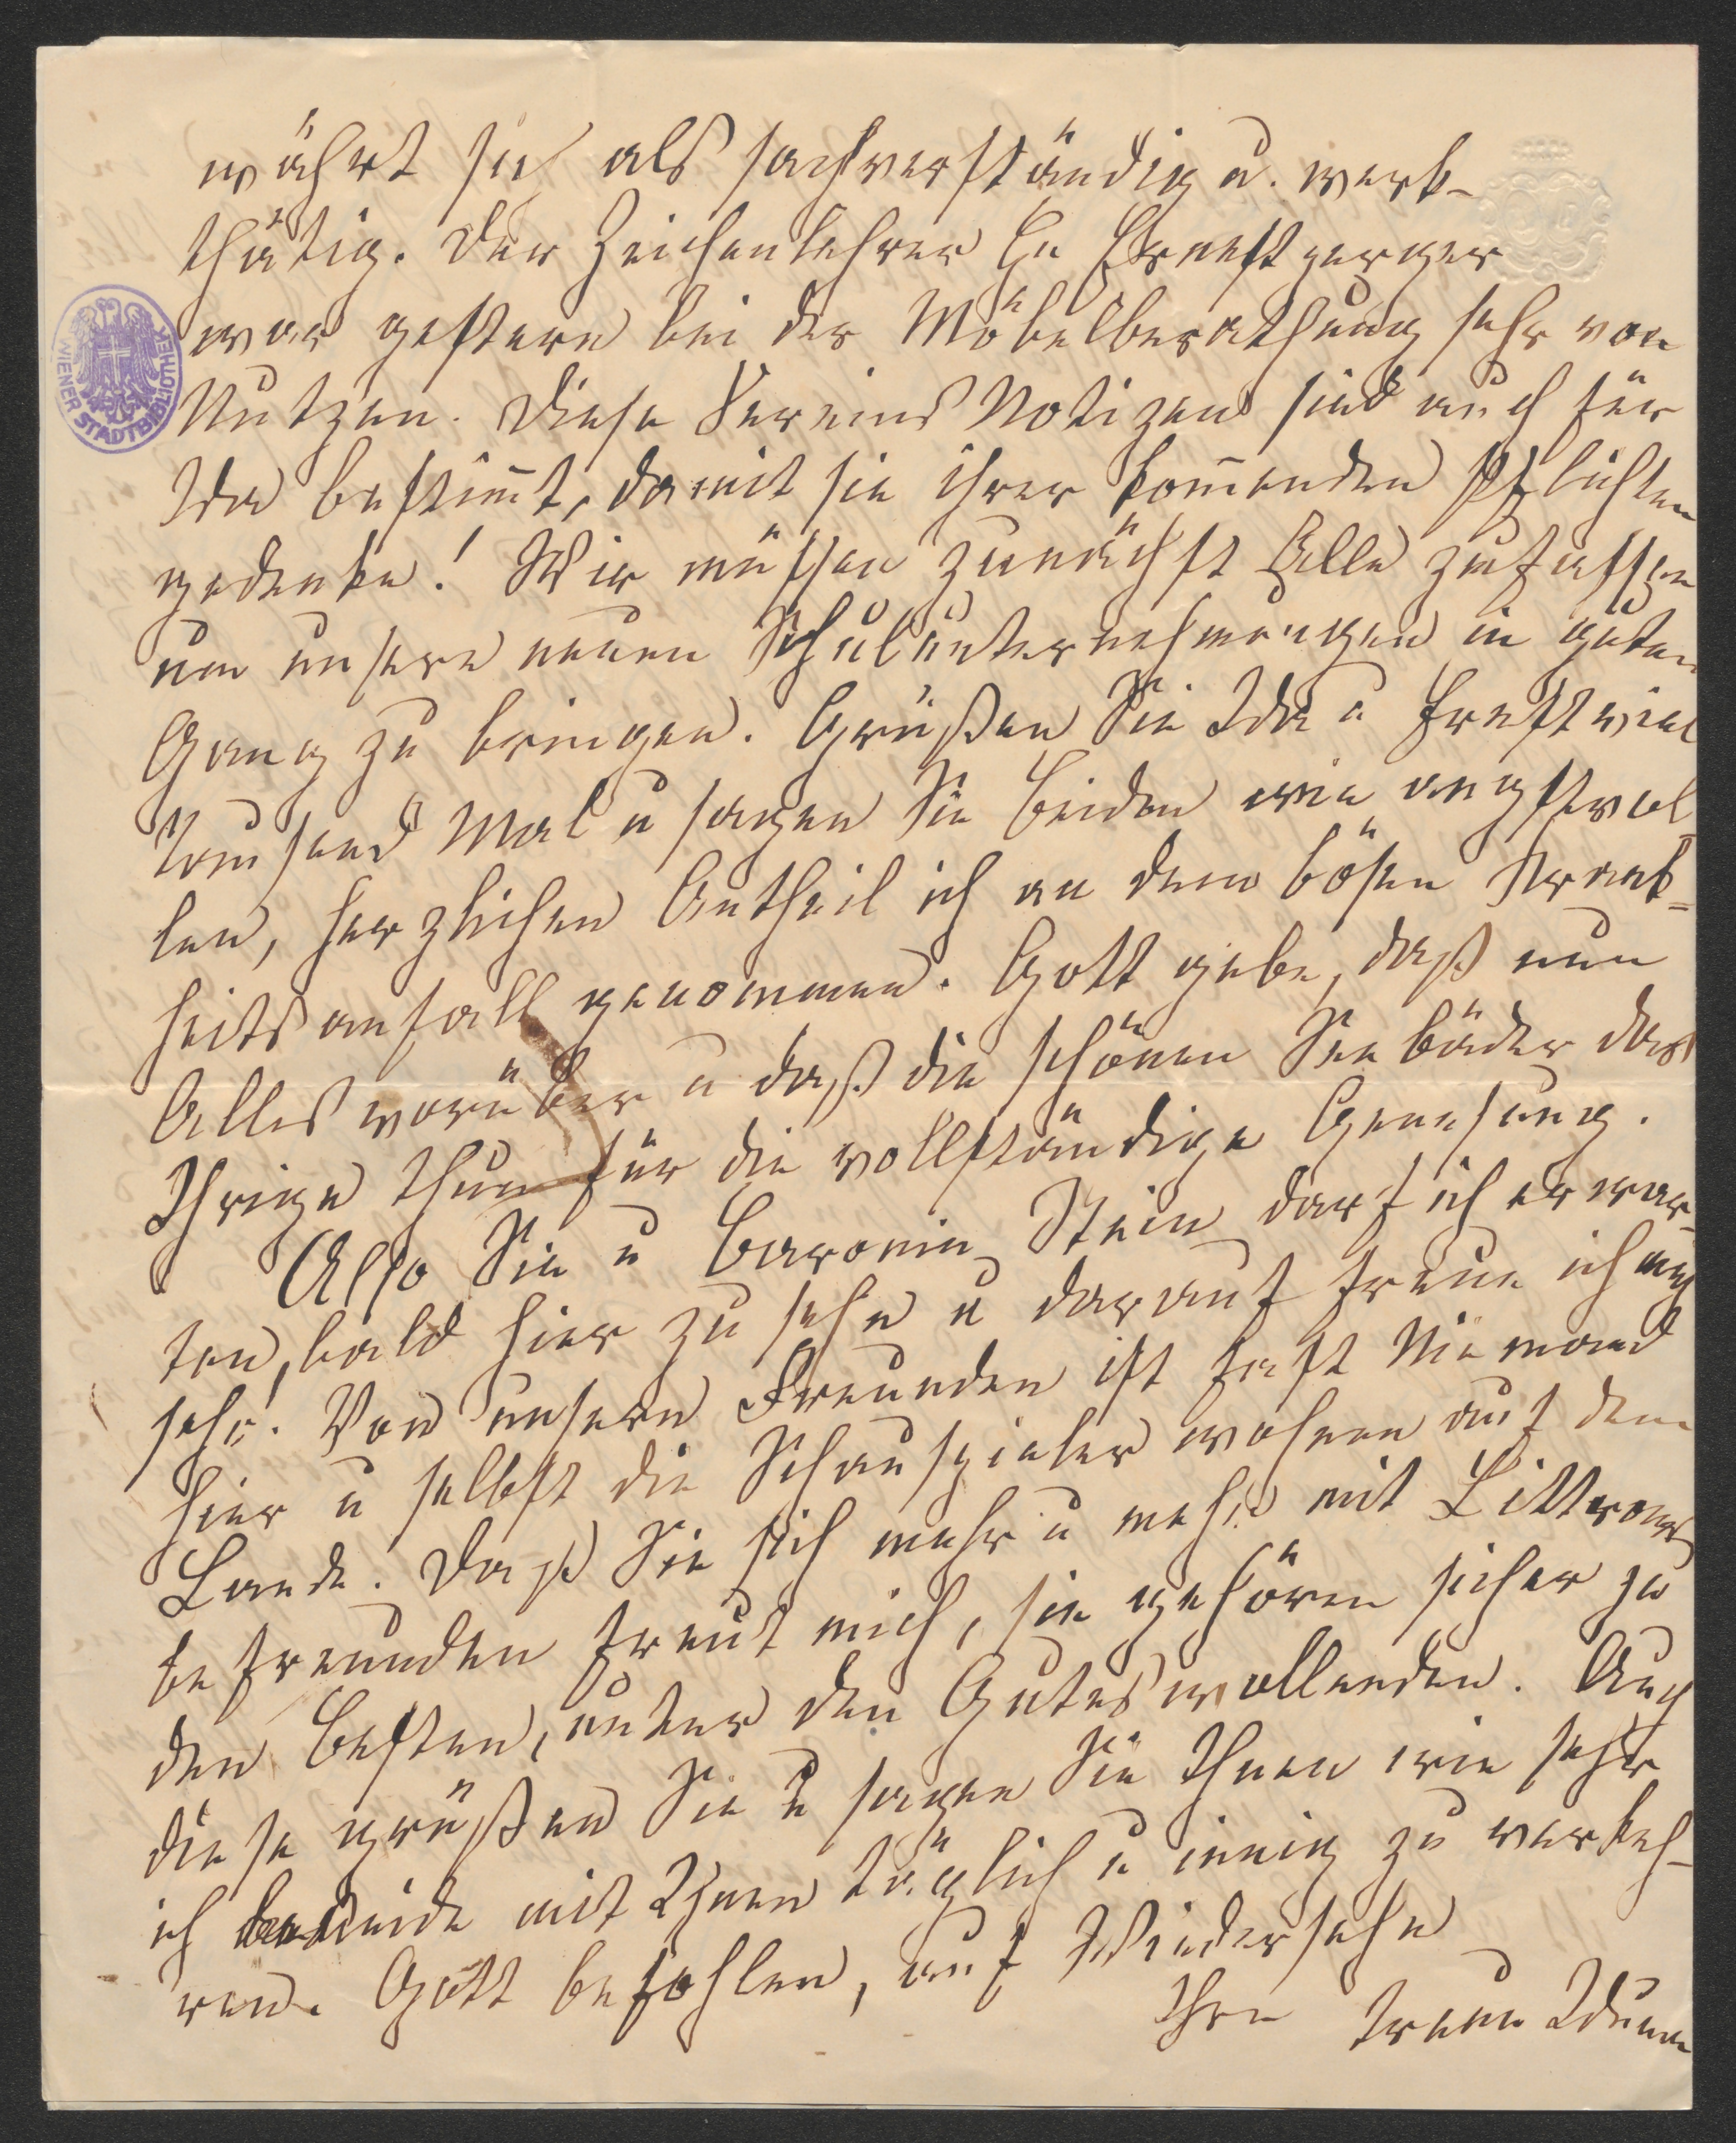 währt sich als sachverständig u. werk-
thätig. Der Zeichenlehrer H
war gestern bei der Möbelberathung sehr von
Nutzen. Diese Vereins Notizen sind auch für
Ida bestim̅t, damit sie ihrer kom̅enden Pflichten
gedenke! Wir müssen zunächst Alle zufassen
um unsere neuen Schulunternehmungen in guten
Gang zu bringen. Grüßen Sie Ida u Ernst viel
tausend Mal u sagen Sie beiden wie angstvol
len, herzlichen Antheil ich an dem bösen Krank-
heitsanfall genommen. Gott gebe, daß nun
Alles vorüber u daß die schönen Seebäder das
Ihrige thun für die vollständige Genesung.
Also Sie u Baronin Stein darf ich erwar-
ten, bald hier zu sehn u darauf freue ich mich
sehr. Von unsern Freunden ist fast Niemand
hier u selbst die Schauspieler wohnen auf dem
Lande. Daß Sie sich mehr u mehr mit Littrows
befreunden freut mich, sie gehören sicher zu
den Besten, unter den Guteswollenden. Auch
diese grüßen Sie u sagen Sie Ihnen wie sehr
ich beneide mit Ihnen täglich u innig zu verkeh-
ren. Gott befohlen, auf Wiedersehn
Ihre treue Iduna
WIENER STADTBIBLIOTHEK